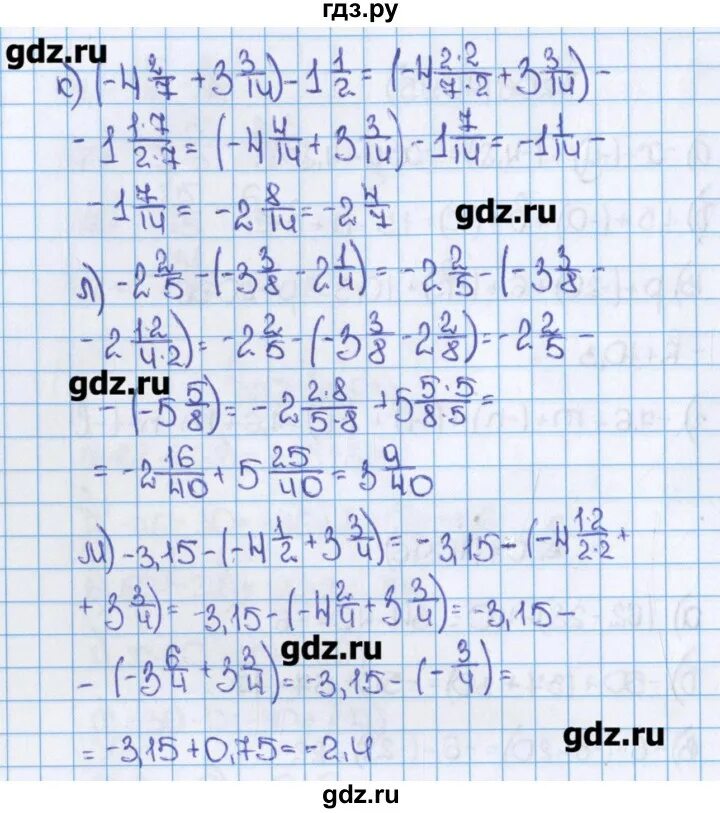 гдз.ру
gdz.ru
к) (-4 2/7 + 3 3/14) - 1 1/2 = (-4 2·2/7·2 + 3 3/14) -
- 1 1·7/2·7 = (-4 4/14 + 3 3/14) - 1 7/14 = -1 1/14 -
- 1 7/14 = -2 8/14 = -2 4/7
gdz.ru
л) -2 2/5 - (-3 3/8 - 2 1/4) = -2 2/5 - (-3 3/8 -
- 2 1·2/4·2) = -2 2/5 - (-3 3/8 - 2 2/8) = -2 2/5 -
gdz.ru
- (-5 5/8) = -2 2·8/5·8 + 5 5·5/8·5 =
= -2 16/40 + 5 25/40 = 3 9/40
м) -3,15 - (-4 1/2 + 3 3/4) = -3,15 - (-4 1·2/2·2 +
+ 3 3/4) = -3,15 - (-4 2/4 + 3 3/4) = -3,15 -
gdz.ru
- (-3 6/4 + 3 3/4) = -3,15 - (-3/4) =
gdz.ru
= -3,15 + 0,75 = -2,4
gdz.ru